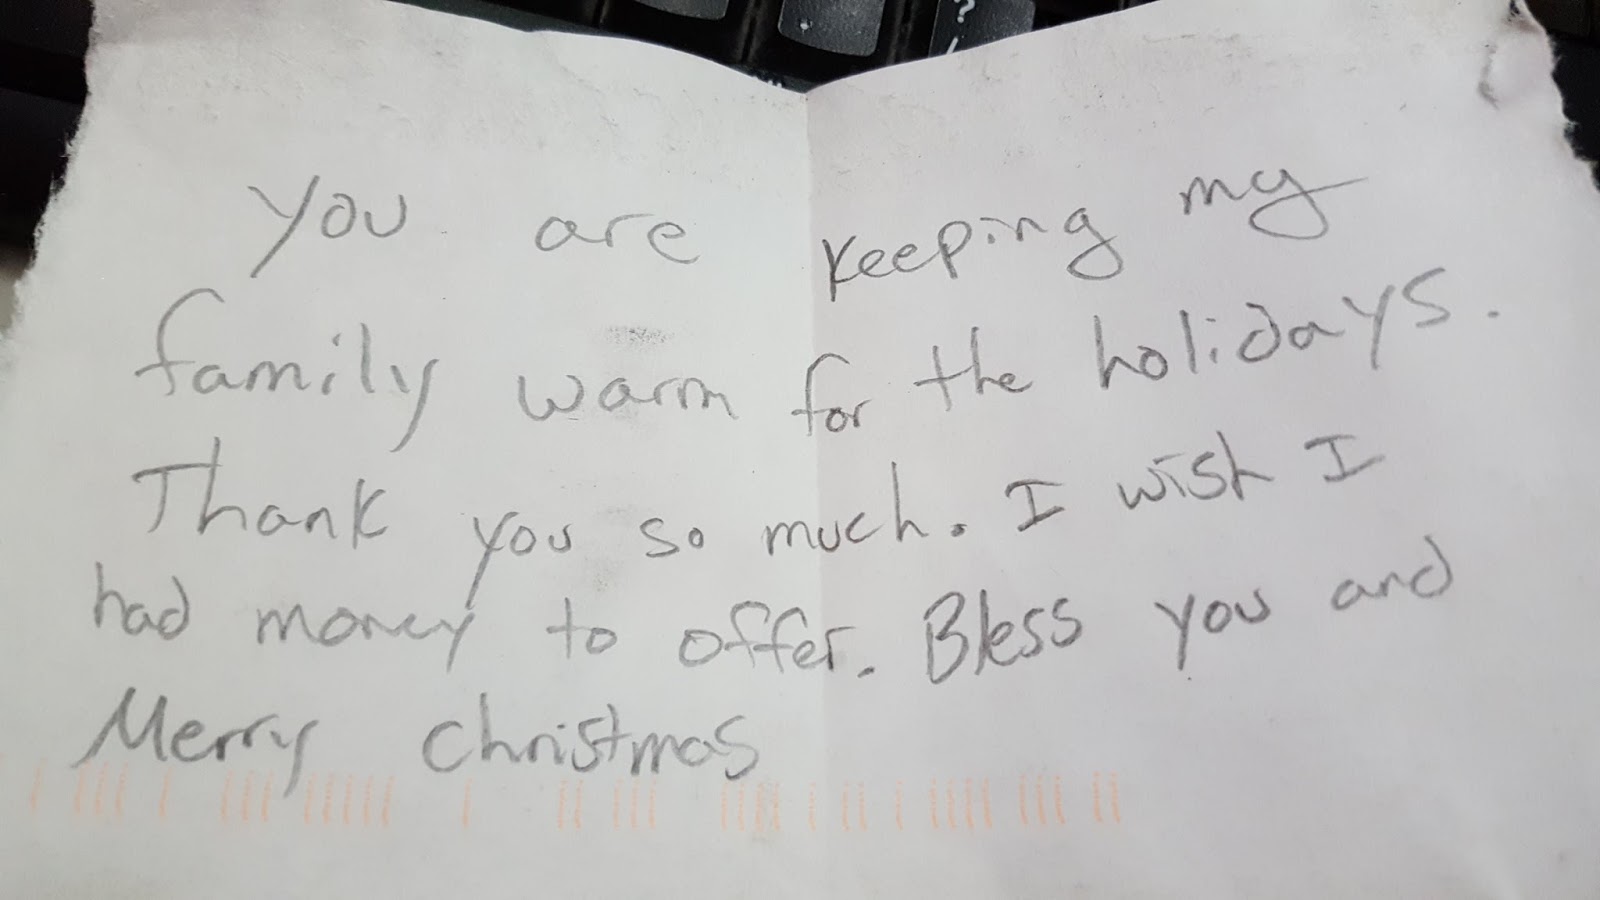 ?
/
You are keeping my
family warm for the holidays.
Thank you so much. I wish I
had money to offer. Bless you and
Merry Christmas